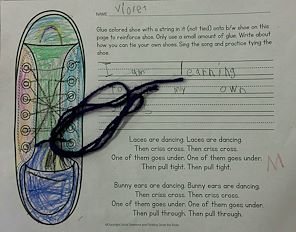 Violet
NAME
Glue colored shoe with a string in it (not tied) onto b/w shoe on this
page to reinforce shoe. Only use a small amount of glue. Write about
how you can tie your own shoes. Sing the song and practice tying the
shoe.
I am learning
my own
Laces are dancing. Laces are dancing.
Then criss cross. Then criss cross.
One of them goes under. One of them goes under.
Then pull tight. Then pull tight.
Bunny ears are dancing. Bunny ears are dancing.
Then criss cross. Then criss cross.
One of them goes under. One of them goes under.
Then pull through. Then pull through.
M